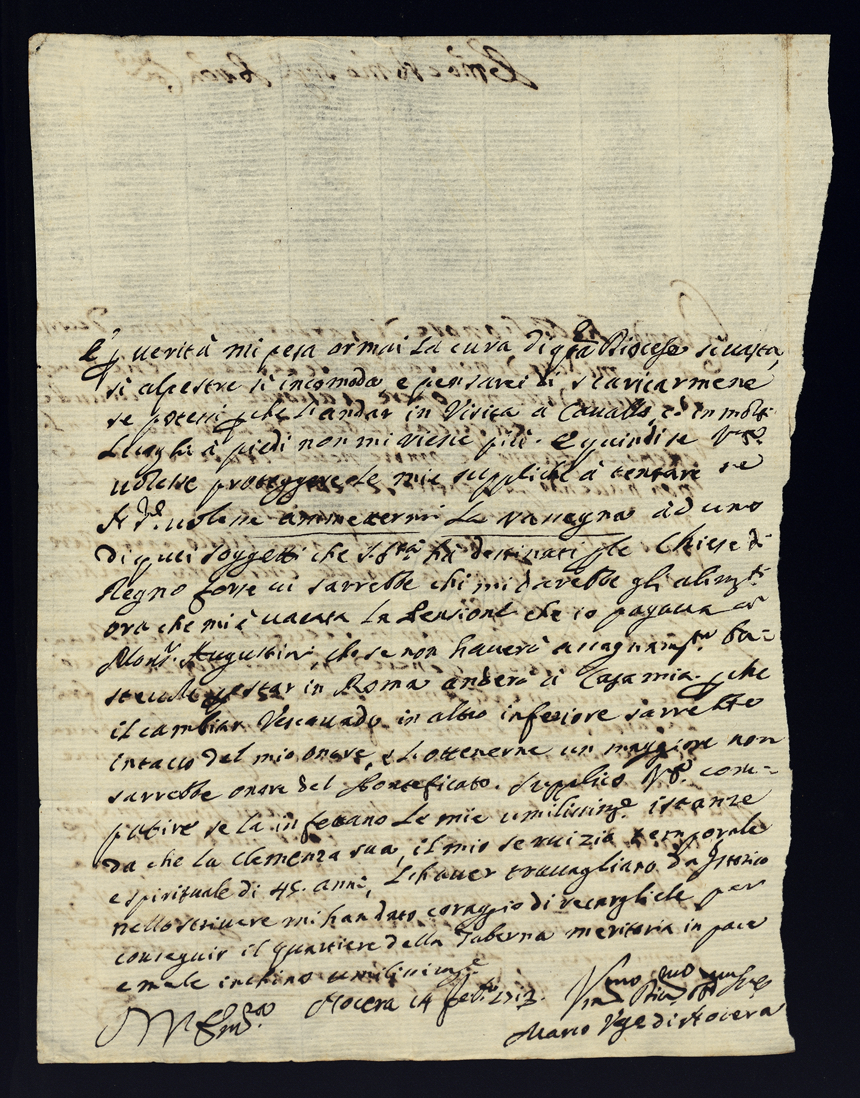 E p verità mi pesa ormai La cura di qta Diocese si vasta,
si alpestre si incomoda e pensarei di scaricarmene
se potessi p che L'andar in Visita à Cavallo, et in molti
Luoghi à piedi non mi riesce più. E quindi se
volesse proteggere Le mie suppliche à tentare se
N. Sre volesse ammettermi La rassegna ad uno
di quei soggetti che S. Stà hà destinati p le Chiese di
Regno forse ci sarrebbe chi mi darebbe gli alimti
ora che mi è vacata La Pensione che io pagava à
Monsr. Augustini che se non haverò assegnamto ba=
stevole p star in Roma anderò à Casa mia. p che
il cambiar Vescovado in altro inferiore sarrebbe
intacco del mio onore, e L'ottenerne un maggiore non
sarrebbe onore del Pontificato. Supplico com=
patire se la infettano Le mie umilissime istanze
da che la Clemenza sua, il mio servizio temporale
e spirituale di 45. anni, L'haver travagliano da Istorico
nello scrivere mi han dato coraggio di recargliele per
conseguir il quartiere della Taberna meritoria in pace
e me le inchino umilissimte
Nocera 14 Febro 1713.
Mario Vesc di Nocera